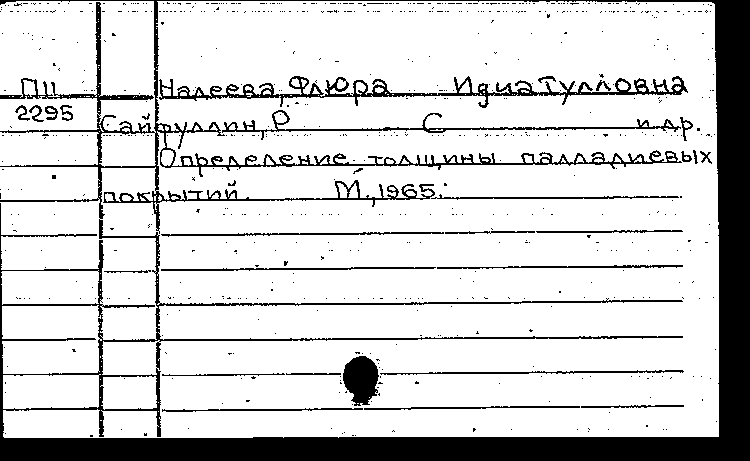 П11 Надеева, Флюра ИдиаТулловна
2295
Сайфуллин, Р С и др.
Определение толщины палладиевых
покрытий. М., 1965.